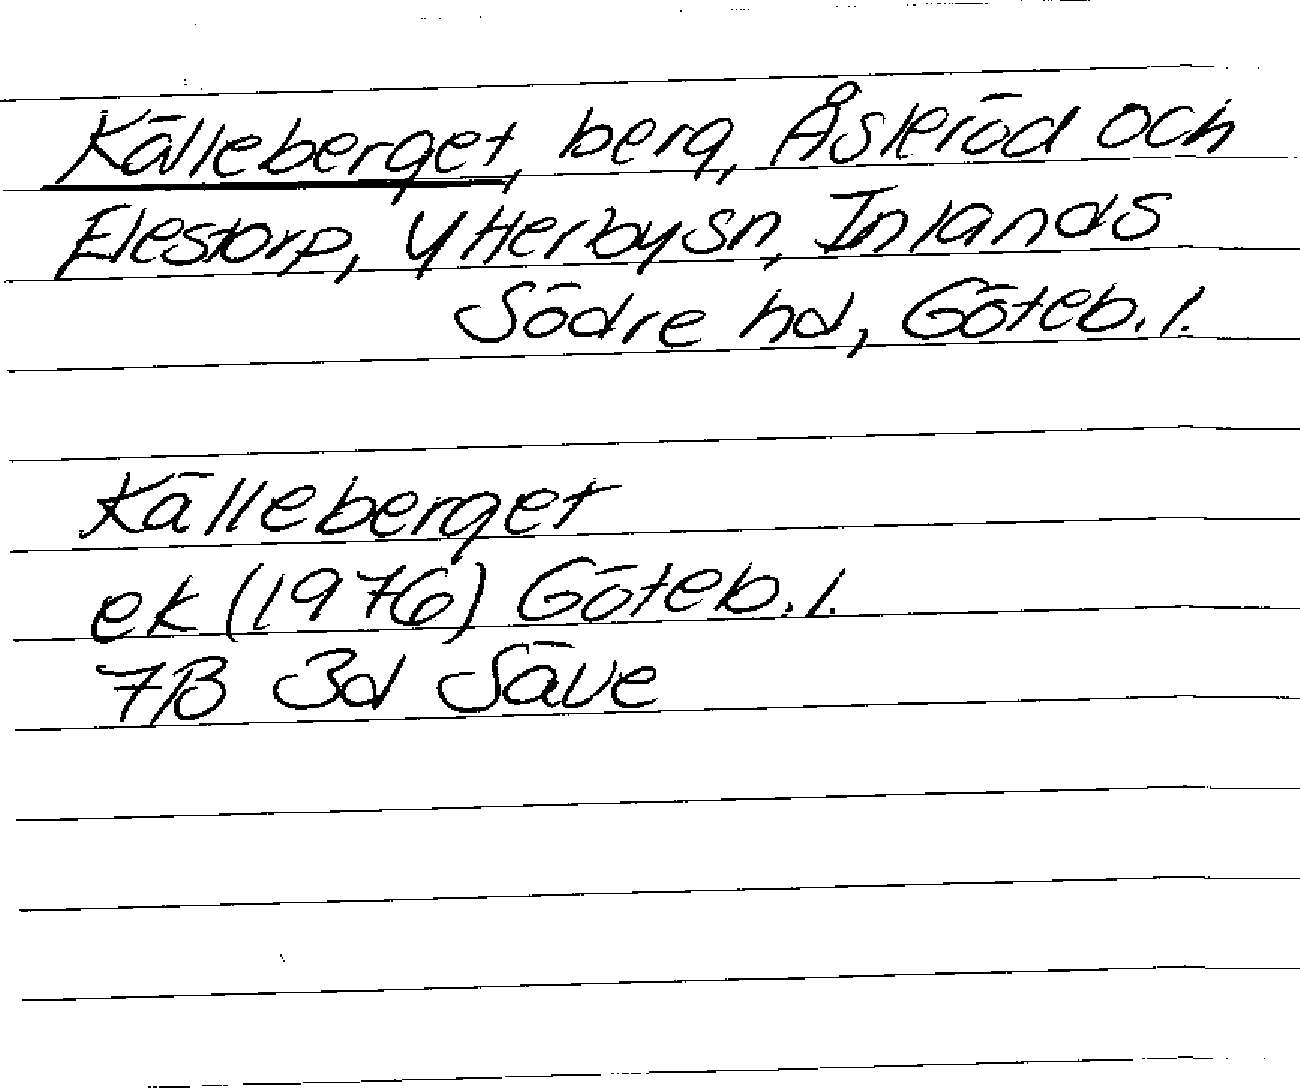 Källeberget, berg, Åseröd och
Elestorp, Ytterby sn, Inlands
Södre hd, Göteb. l.
Källeberget
ek (1976) Göteb. l.
7B 3d Säve